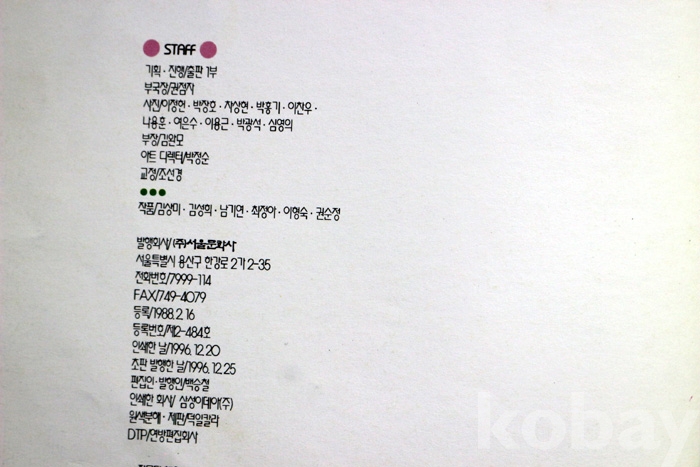 STAFF
기획·진행/출판 1부
부국장/권점자
사진/이정헌·박장호·차상현·박홍기·이찬우·
나용훈·여은수·이용근·박광석·심영의
부장/김완모
아트 디렉터/박정순
교정/조선경
작품/김상미·김성희·남기연·최정아·이형숙·권순정
발행회사/(주)서울문화사
서울특별시 용산구 한강로 2가 2-35
전화번호/7999-114
FAX/749-4079
등록/1988.2.16
등록번호/제2-484호
인쇄한 날/1996.12.20
초판 발행한 날/1996.12.25
편집인·발행인/백승철
인쇄한 회사/ 삼성이데아(주)
원색분해·제판/덕일칼라
DTP/연방편집회사
kobay